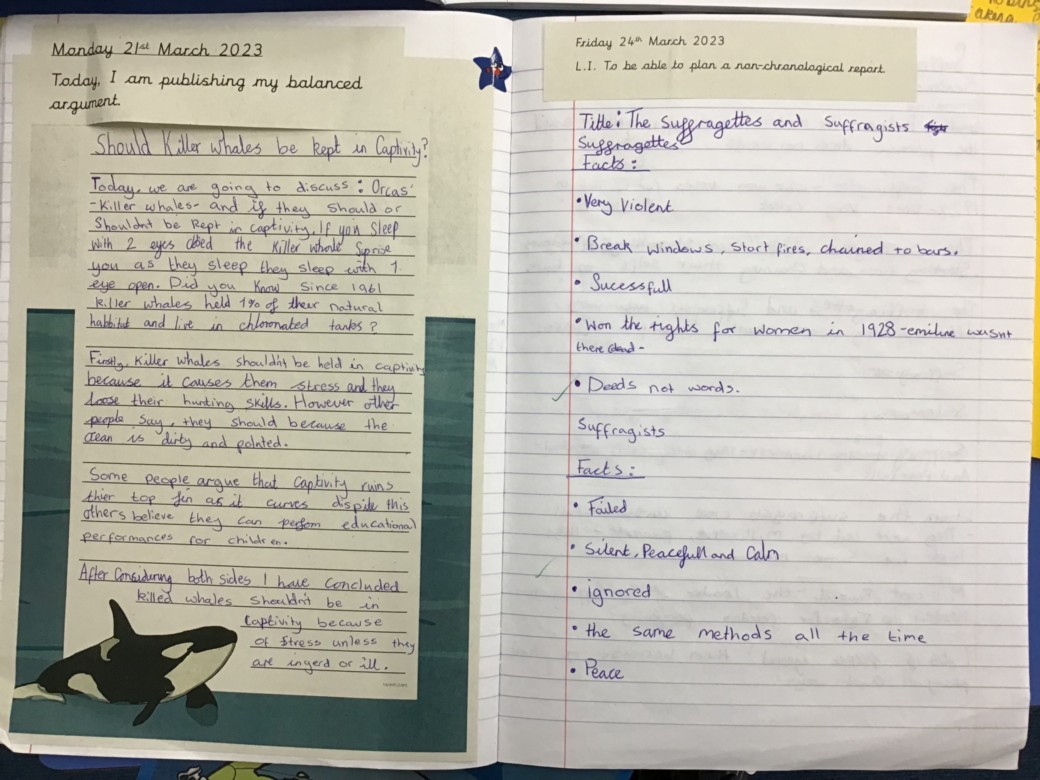 Monday 21st March 2023
Today, I am publishing my balanced
argument.
Should Killer whales be kept in Captivity?
Today, we are going to discuss : Orcas
-Killer whales- and if they should or
Shouldnt be Kept in captivity. If you Sleep
with 2 eyes the Killer whale Suprise
you as they sleep they sleep with 1
eye open. Did you Know Since 1961
killer whales held 1% of their natural
habbitat and live in chloronated tanks ?
Firstly, Killer whales shouldnt be held in captivity
because it causes them stress and they
loose their hunting skills. However other
people say, they should because the
Ocean is dirty and polnted.
Some people argue that Captivity ruins
thier top fin as it curves dispite this
others believe they can perfom educational
performances for children.
After Considering both sides I have Concluded
killed whales Shouldnt be in
Captivity because
of Stress unless they
are ingerd or ill.
Friday 24th March 2023
L.I. To be able to plan a non-chronological report.
Title: The Suffragettes and Suffragists
Suffragettes
Facts :
• Very Violent
• Break windows, Start fires, chained to bars.
• Sucessfull
• Won the rights for women in 1928 -emiline wasnt
there
• Deeds not words.
Suffragists
Facts :
• Failed
• Silent, Peacefull and Calm
• ignored
• the same methods all the time
• Peace